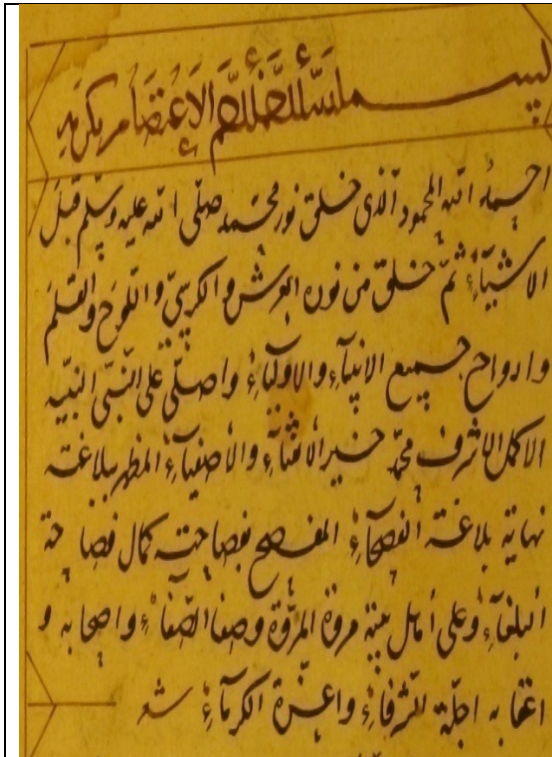 بسم الله اللهم الاعتصام بكرمه
احمد الله المحمود الذى خلق نور محمد صلى الله عليه وسلم قبل
الاشيآء ثم خلق من نوره العرش والكرسىّ واللوح والقلم
وارواح جميع الانبيآء والاوليآء واصلّى على النبىّ النبيه
الاكمل الاشرف محمّد خير الأتقيآء والأصفيآء المظهر ببلاغته
نهاية بلاغة الفصحآء المفصح بفصاحته كمال فصاحة
البلغآء وعلى اهل بيته مروة المروّة وصفا الصّفآء واصحابه و
اعقابه اجلّة الشرفآء واعزّة الكرمآء شعر